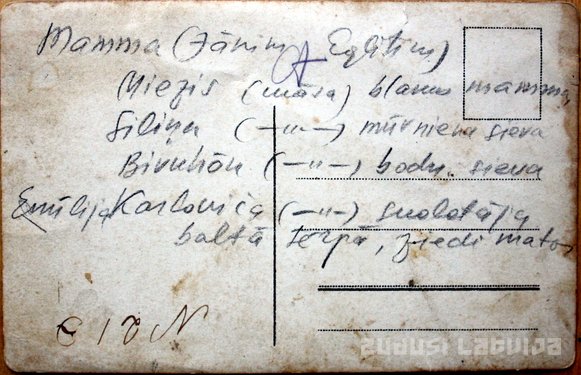 Mamma (Jānim Eglītim)
Miezis (māsa) blakus mammai
Siliņa (—"—) mūrnieka sieva
(—"—) bodn. sieva
Emīlija Karloviča (—"—) skolotāja
baltā tērpā, ziedi matos
E 18 N
zudusi Latvija